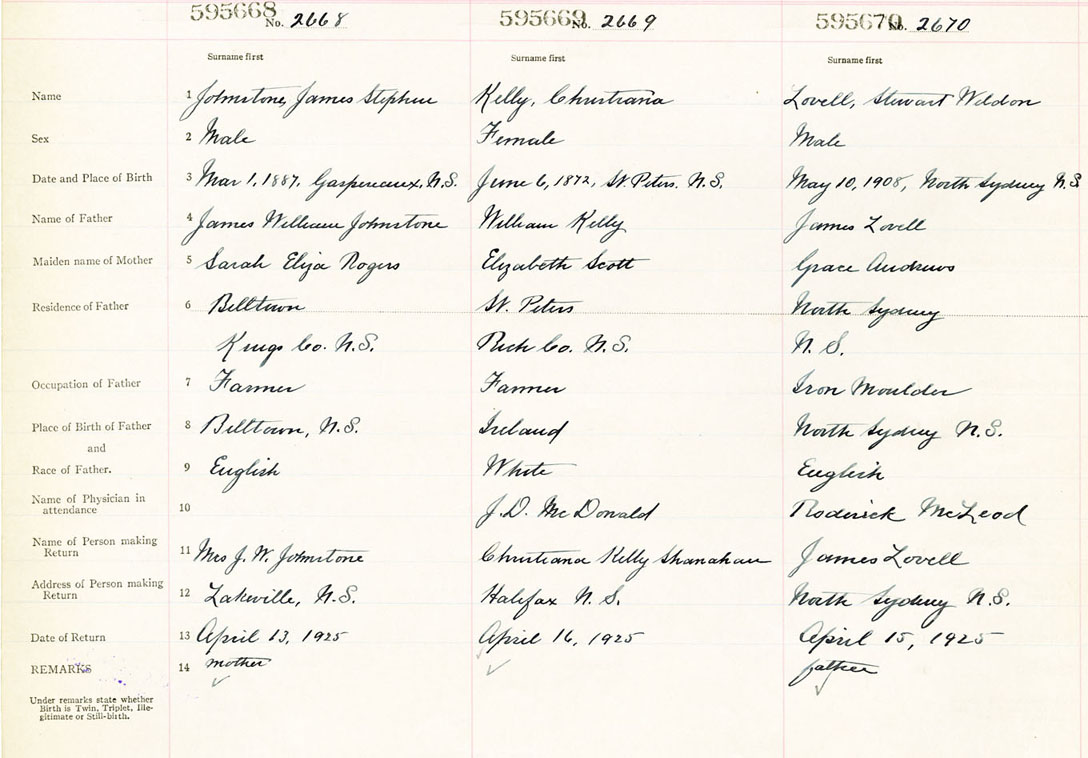 595668 No. 2668 595669 No. 2669 595670 No. 2670
Surname first Surname first Surname first
Name 1 Johnstone, James Stephen Kelly, Christiana Lovell, Stewart Weldon
Sex 2 Male Female Male
Date and Place of Birth 3 Mar 1, 1887, Gaspereaux, N.S. June 6, 1872, St. Peters, N.S. May 10, 1908, North Sydney N.S
Name of Father 4 James William Johnstone William Kelly James Lovell
Maiden name of Mother 5 Sarah Eliza Rogers Elizabeth Scott Grace Andrews
Residence of Father 6 Billtown St. Peters North Sydney
Kings Co. N.S. Rich Co. N.S. N.S.
Occupation of Father 7 Farmer Farmer Iron Moulder
Place of Birth of Father 8 Billtown, N.S. Ireland North Sydney N.S.
and
Race of Father. 9 English White English
Name of Physician in
attendance 10 J.D. McDonald Roderick McLeod
Name of Person making
Return 11 Mrs J.W. Johnstone Christiana Kelly Shanahan James Lovell
Address of Person making
Return 12 Lakeville, N.S. Halifax N.S. North Sydney N.S.
Date of Return 13 April 13, 1925 April 16, 1925 April 15, 1925
REMARKS 14 mother father
Under remarks state whether
Birth is Twin, Triplet, Ille-
gitimate or Still-birth.